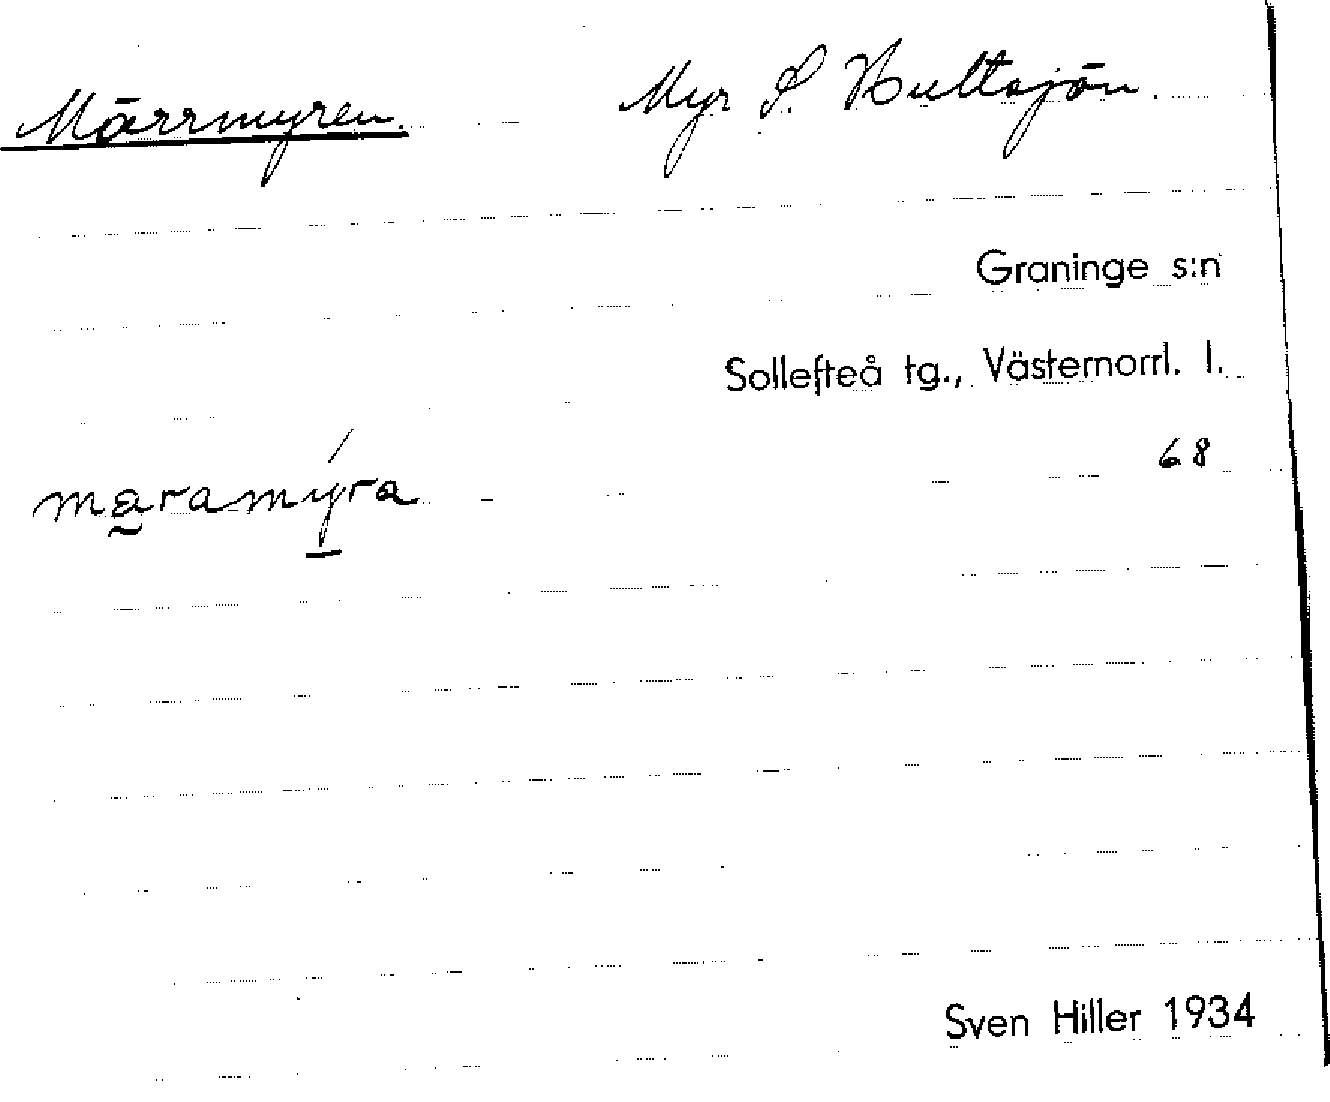 Märrmyren. Myr S. Hultsjön.
Graninge s:n
Sollefteå tg., Västernorrl. l.
68
maramýra
Sven Hiller 1934